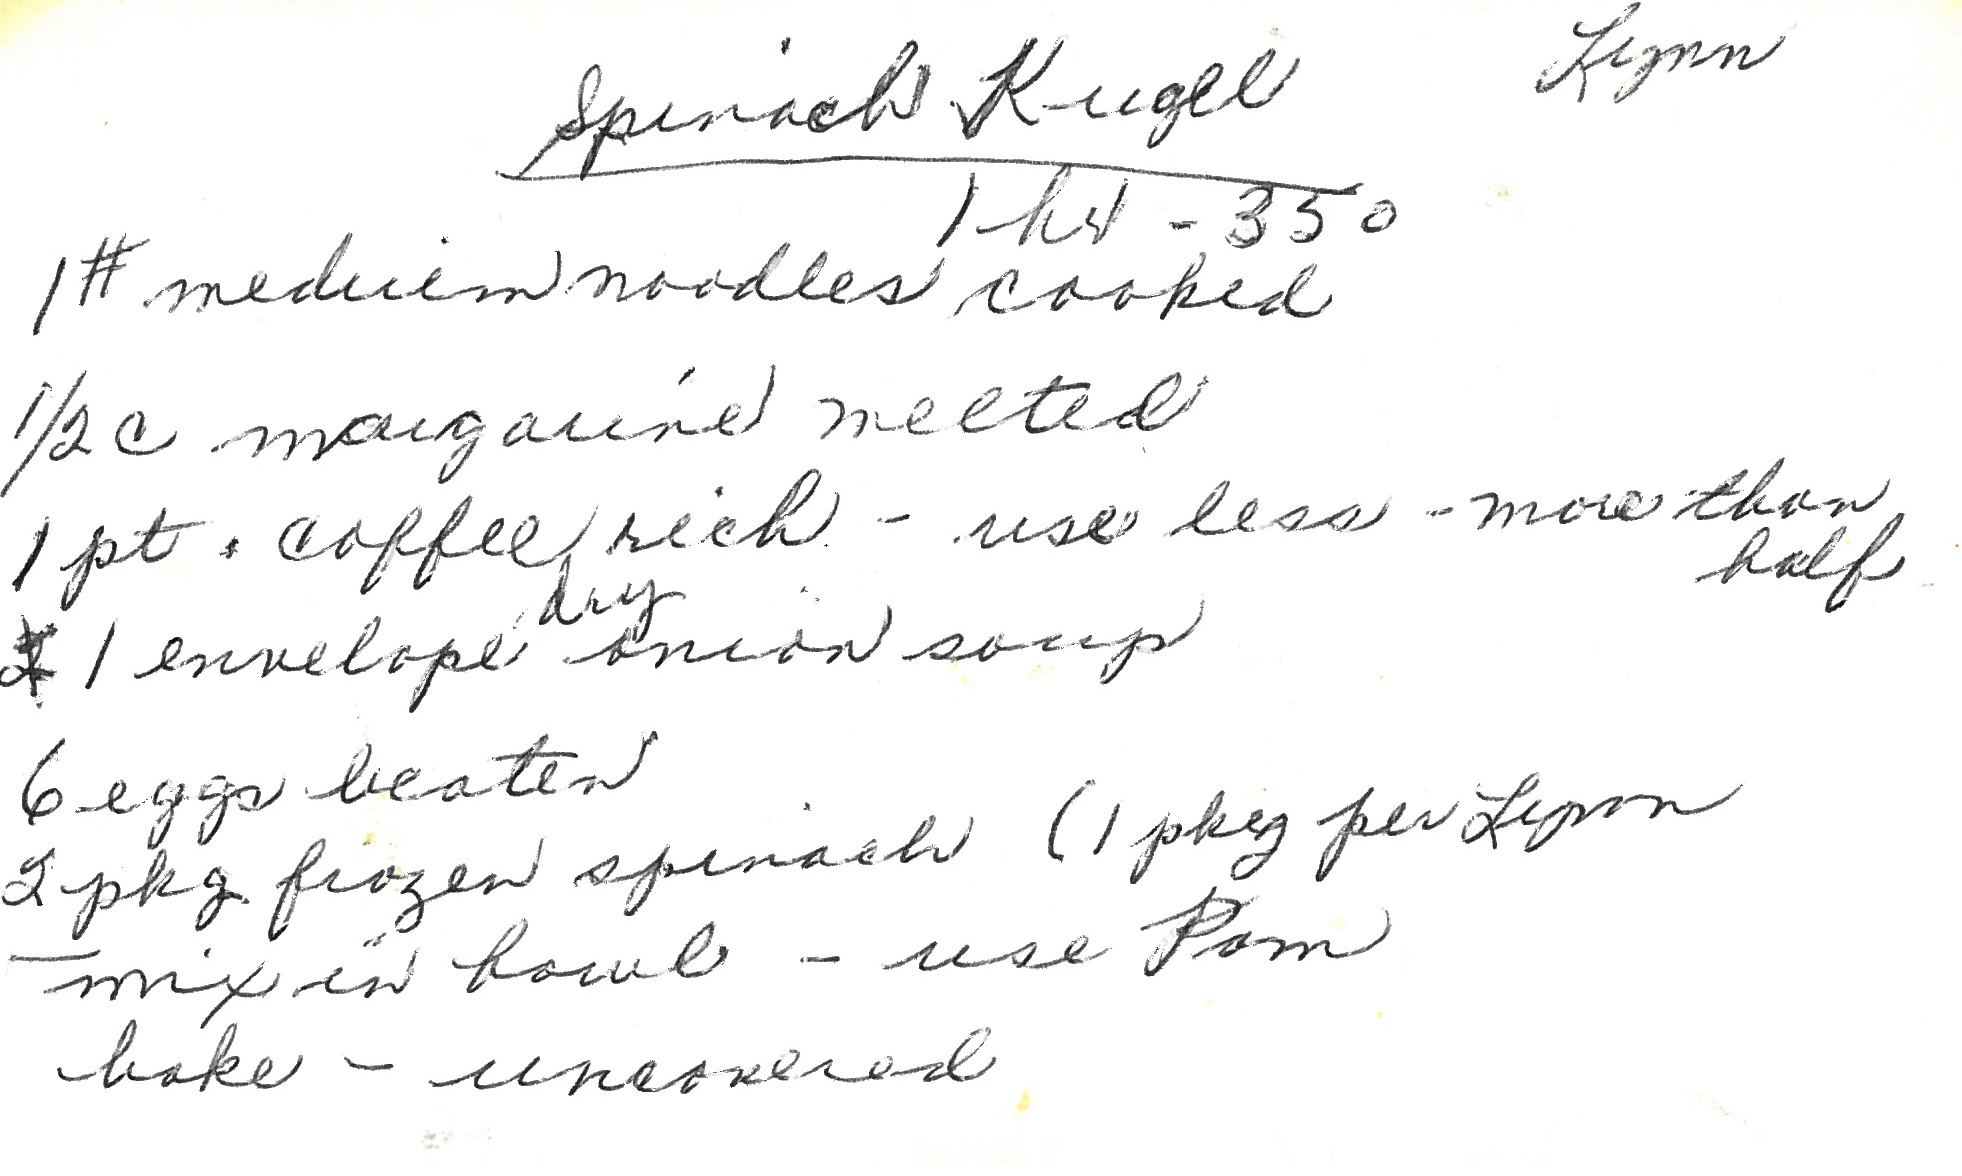 Spinach Kugel Lynn
1 hr - 350
1# medium noodles cooked
1/2 c margarine melted
1 pt. coffee rich - use less - more than
half
1 envelope dry onion soup
6 eggs beaten
2 pkg. frozen spinach (1 pkg per Lynn
- mix in bowl - use Pam
bake - uncovered